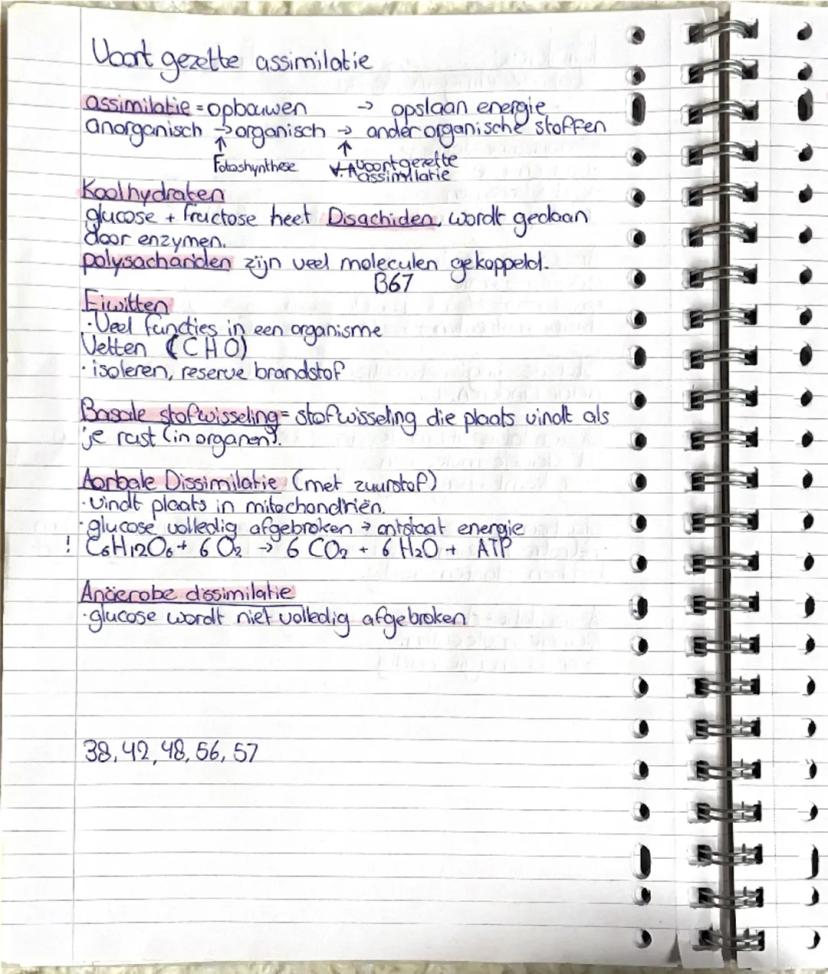 Voort gezette assimilatie
assimilatie = opbouwen → opslaan energie
anorganisch → organisch → ander organische stoffen
↑ ↑
Fotoshynthese V.A voortgezette
assimilatie
Koolhydraten
glucose + fructose heet Disachiden, wordt gedaan
door enzymen.
polysachariden zijn veel moleculen gekoppeld.
B67
Eiwitten
· Veel functies in een organisme
Vetten (CHO)
· isoleren, reserve brandstof
Basale stofwisseling = stofwisseling die plaats vindt als
je rust (in organen).
Aorbale Dissimilatie (met zuurstof)
· vindt plaats in mitochondriën.
· glucose volledig afgebroken → ontstaat energie
! C6H12O6 + 6 O2 → 6 CO2 + 6 H2O + ATP
Anäerobe dissimilatie
· glucose wordt niet volledig afgebroken
38, 42, 48, 56, 57